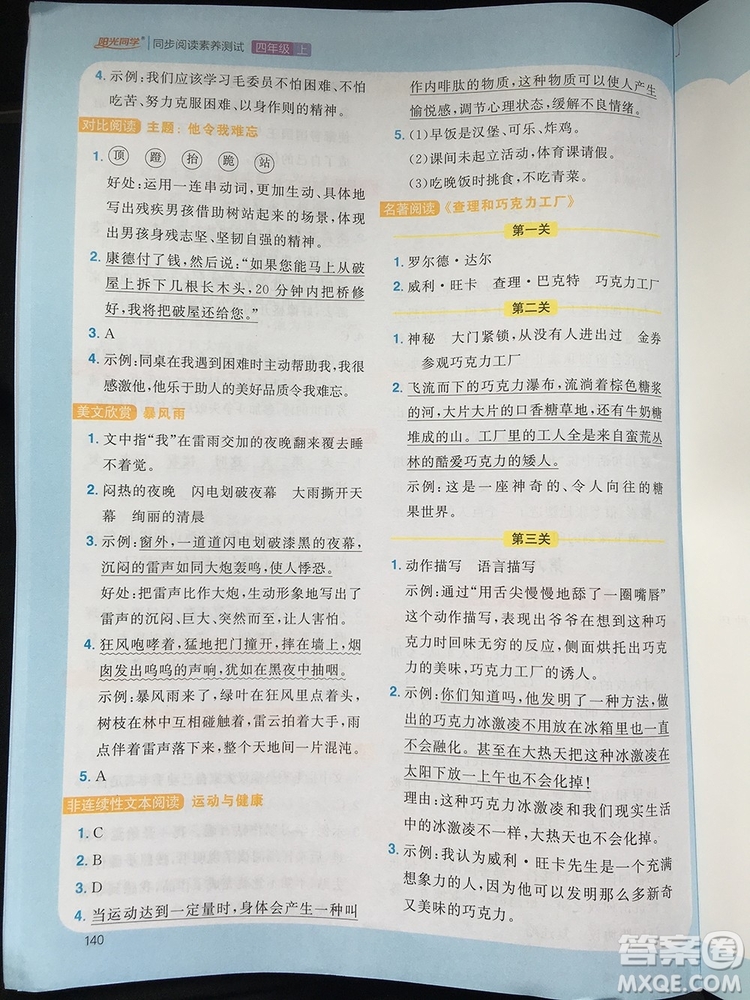 阳光同学® 同步阅读素养测试 四年级 上
4. 示例:我们应该学习毛委员不怕困难、不怕
吃苦、努力克服困难、以身作则的精神。
对比阅读 主题:他令我难忘
1. 顶 蹬 抬 跪 站
好处:运用一连串动词,更加生动、具体地
写出了残疾男孩借助树站起来的场景,体
现了男孩身残志坚、坚韧自强的精神。
2. 康德付了钱,然后说:“如果您能马上从破
屋上拆下几根长木头,20 分钟内把桥修
好,我将把破屋还给您。”
3. A
4. 示例:同桌在我遇到困难时主动帮助我,我很
感激他,他乐于助人的美好品质令我难忘。
美文欣赏 暴风雨
1. 文中指“我”在雷雨交加的夜晚翻来覆去睡
不着觉。
2. 闷热的夜晚 闪电划破夜幕 大雨撕开天
幕 绚丽的清晨
3. 示例:窗外,一道道闪电划破漆黑的夜幕,
沉闷的雷声如同大炮轰鸣,使人悸恐。
好处:把雷声比作大炮,生动形象地写出了
雷声的沉闷、巨大、突然而至,让人害怕。
4. 狂风咆哮着,猛地把门撞开,摔在墙上,烟
囱发出呜呜的声响,犹如在黑夜中抽咽。
示例:暴风雨来了,绿叶在狂风里飘摇着,
树枝在林中互相碰触着,雷云拍着大手,雨
点伴着雷声落下来,整个天地间一片混沌。
5. A
非连续性文本阅读 运动与健康
1. C
2. B
3. D
4. 当运动达到一定量时,身体会产生一种叫
140
作内啡肽的物质,这种物质可以使人产生
愉悦感,调节心理状态,缓解不良情绪。
5. (1)早饭是汉堡、可乐、炸鸡。
(2)课间未起立活动,体育课请假。
(3)吃晚饭时挑食,不吃青菜。
名著阅读 《查理和巧克力工厂》
第一关
1. 罗尔德·达尔
2. 威利·旺卡 查理·巴克特 巧克力工厂
第二关
1. 神秘 大门紧锁,从没有人进出过 金券
参观巧克力工厂
2. 飞流而下的巧克力瀑布,流淌着棕色糖浆
的河,大片大片的口香糖草地,还有牛奶糖
堆成的山。工厂里的工人全是来自蛮荒丛
林的酷爱巧克力的矮人。
示例:这是一座神奇的、令人向往的糖
果世界。
第三关
1. 动作描写 语言描写
示例:通过“用舌尖慢慢地舔了一圈嘴唇”
这个动作描写,表现出爷爷在想到享受巧
克力时无比享受的反应,侧面烘托出巧克力
的美味,巧克力工厂的诱人。
2. 示例:你们知道吗,他发明了一种方法,做
出的巧克力冰激凌不放在冰箱里也一直
不会融化。甚至在大热天把这冰激凌在
太阳下放一上午也不会化掉!
理由:这种巧克力冰激凌和实际生活中
的情况不相符,大热天也不会化掉。
3. 示例:我认为威利·旺卡先生是一个充满
想象力的人,因为他可以发明那么多新奇
又美味的巧克力。
答案圈
MXQE.COM